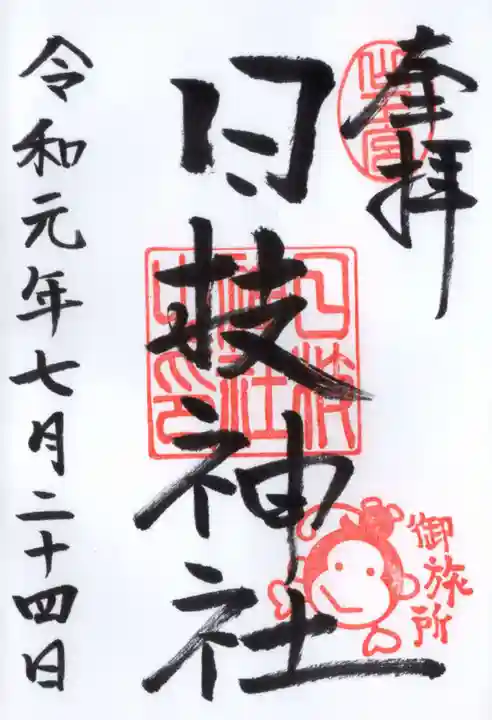 奉拝
日枝神社
御旅所
令和元年七月二十四日